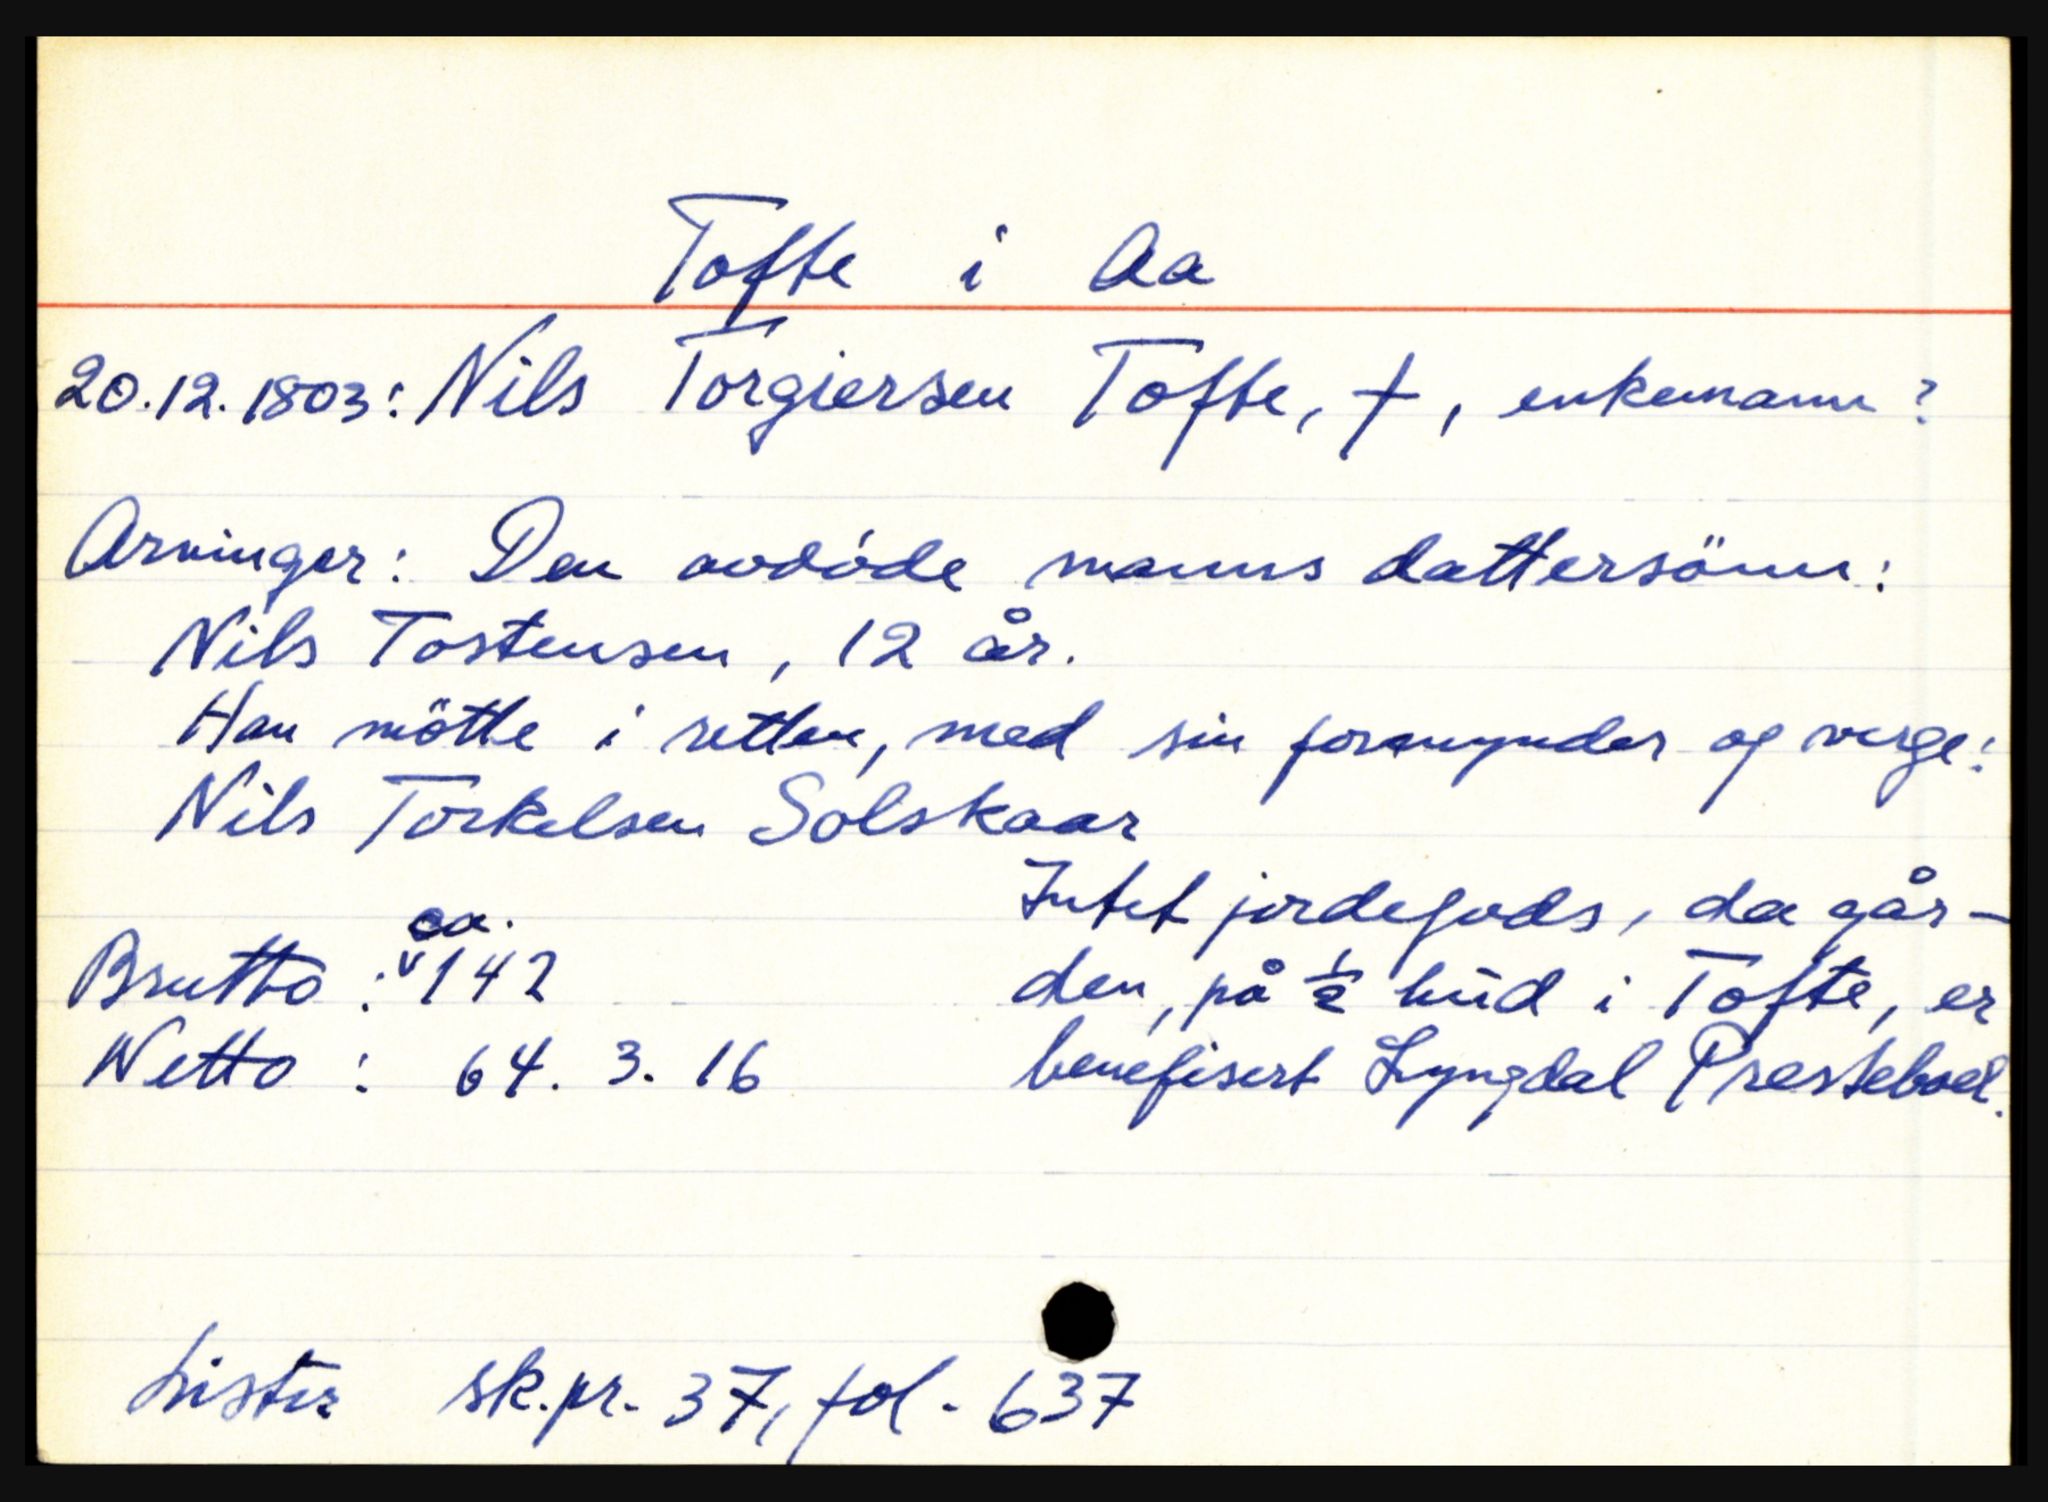 Tofte i Aa
20.12.1803: Nils Torgiersen Tofte, †, enkemann?
Arvinger: Den avdøde manns dattersönn:
Nils Tostensen, 12 år.
Han mötte i retten, med sin formynder og verge:
Nils Torkelsen Solskaar
Brutto: ca. 142
Netto: 64. 3. 16
Intet jordegods, da går-
den, på ½ hud i Tofte, er
benefisert Lyngdal Presteboel.
Lister sk.pr. 37, fol. 637